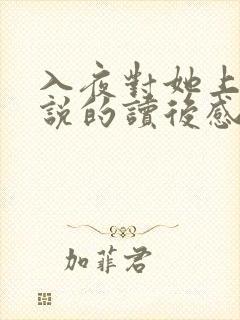 入夜對她上
說的讀後感
加菲君